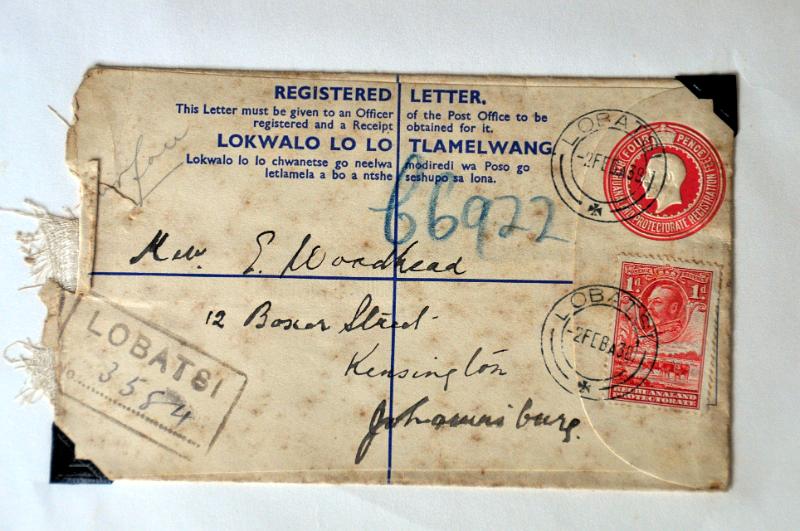 REGISTERED LETTER.
This Letter must be given to an Officer of the Post Office to be
registered and a Receipt obtained for it.
LOKWALO LO LO TLAMELWANG.
Lokwalo lo lo chwanetse go neelwa modiredi wa Poso go
letlamela a bo a ntshe seshupo sa lona.
66922
E. Woodhead
12 Boxer Street
Kensington
Johannisburg.
LOBATSI
3584
LOBATSI
-2FEB
FOURPENCE
PROTECTORATE REGISTRATION
1d 1d
LOBATSI
-2FEB
BECHUANALAND
PROTECTORATE